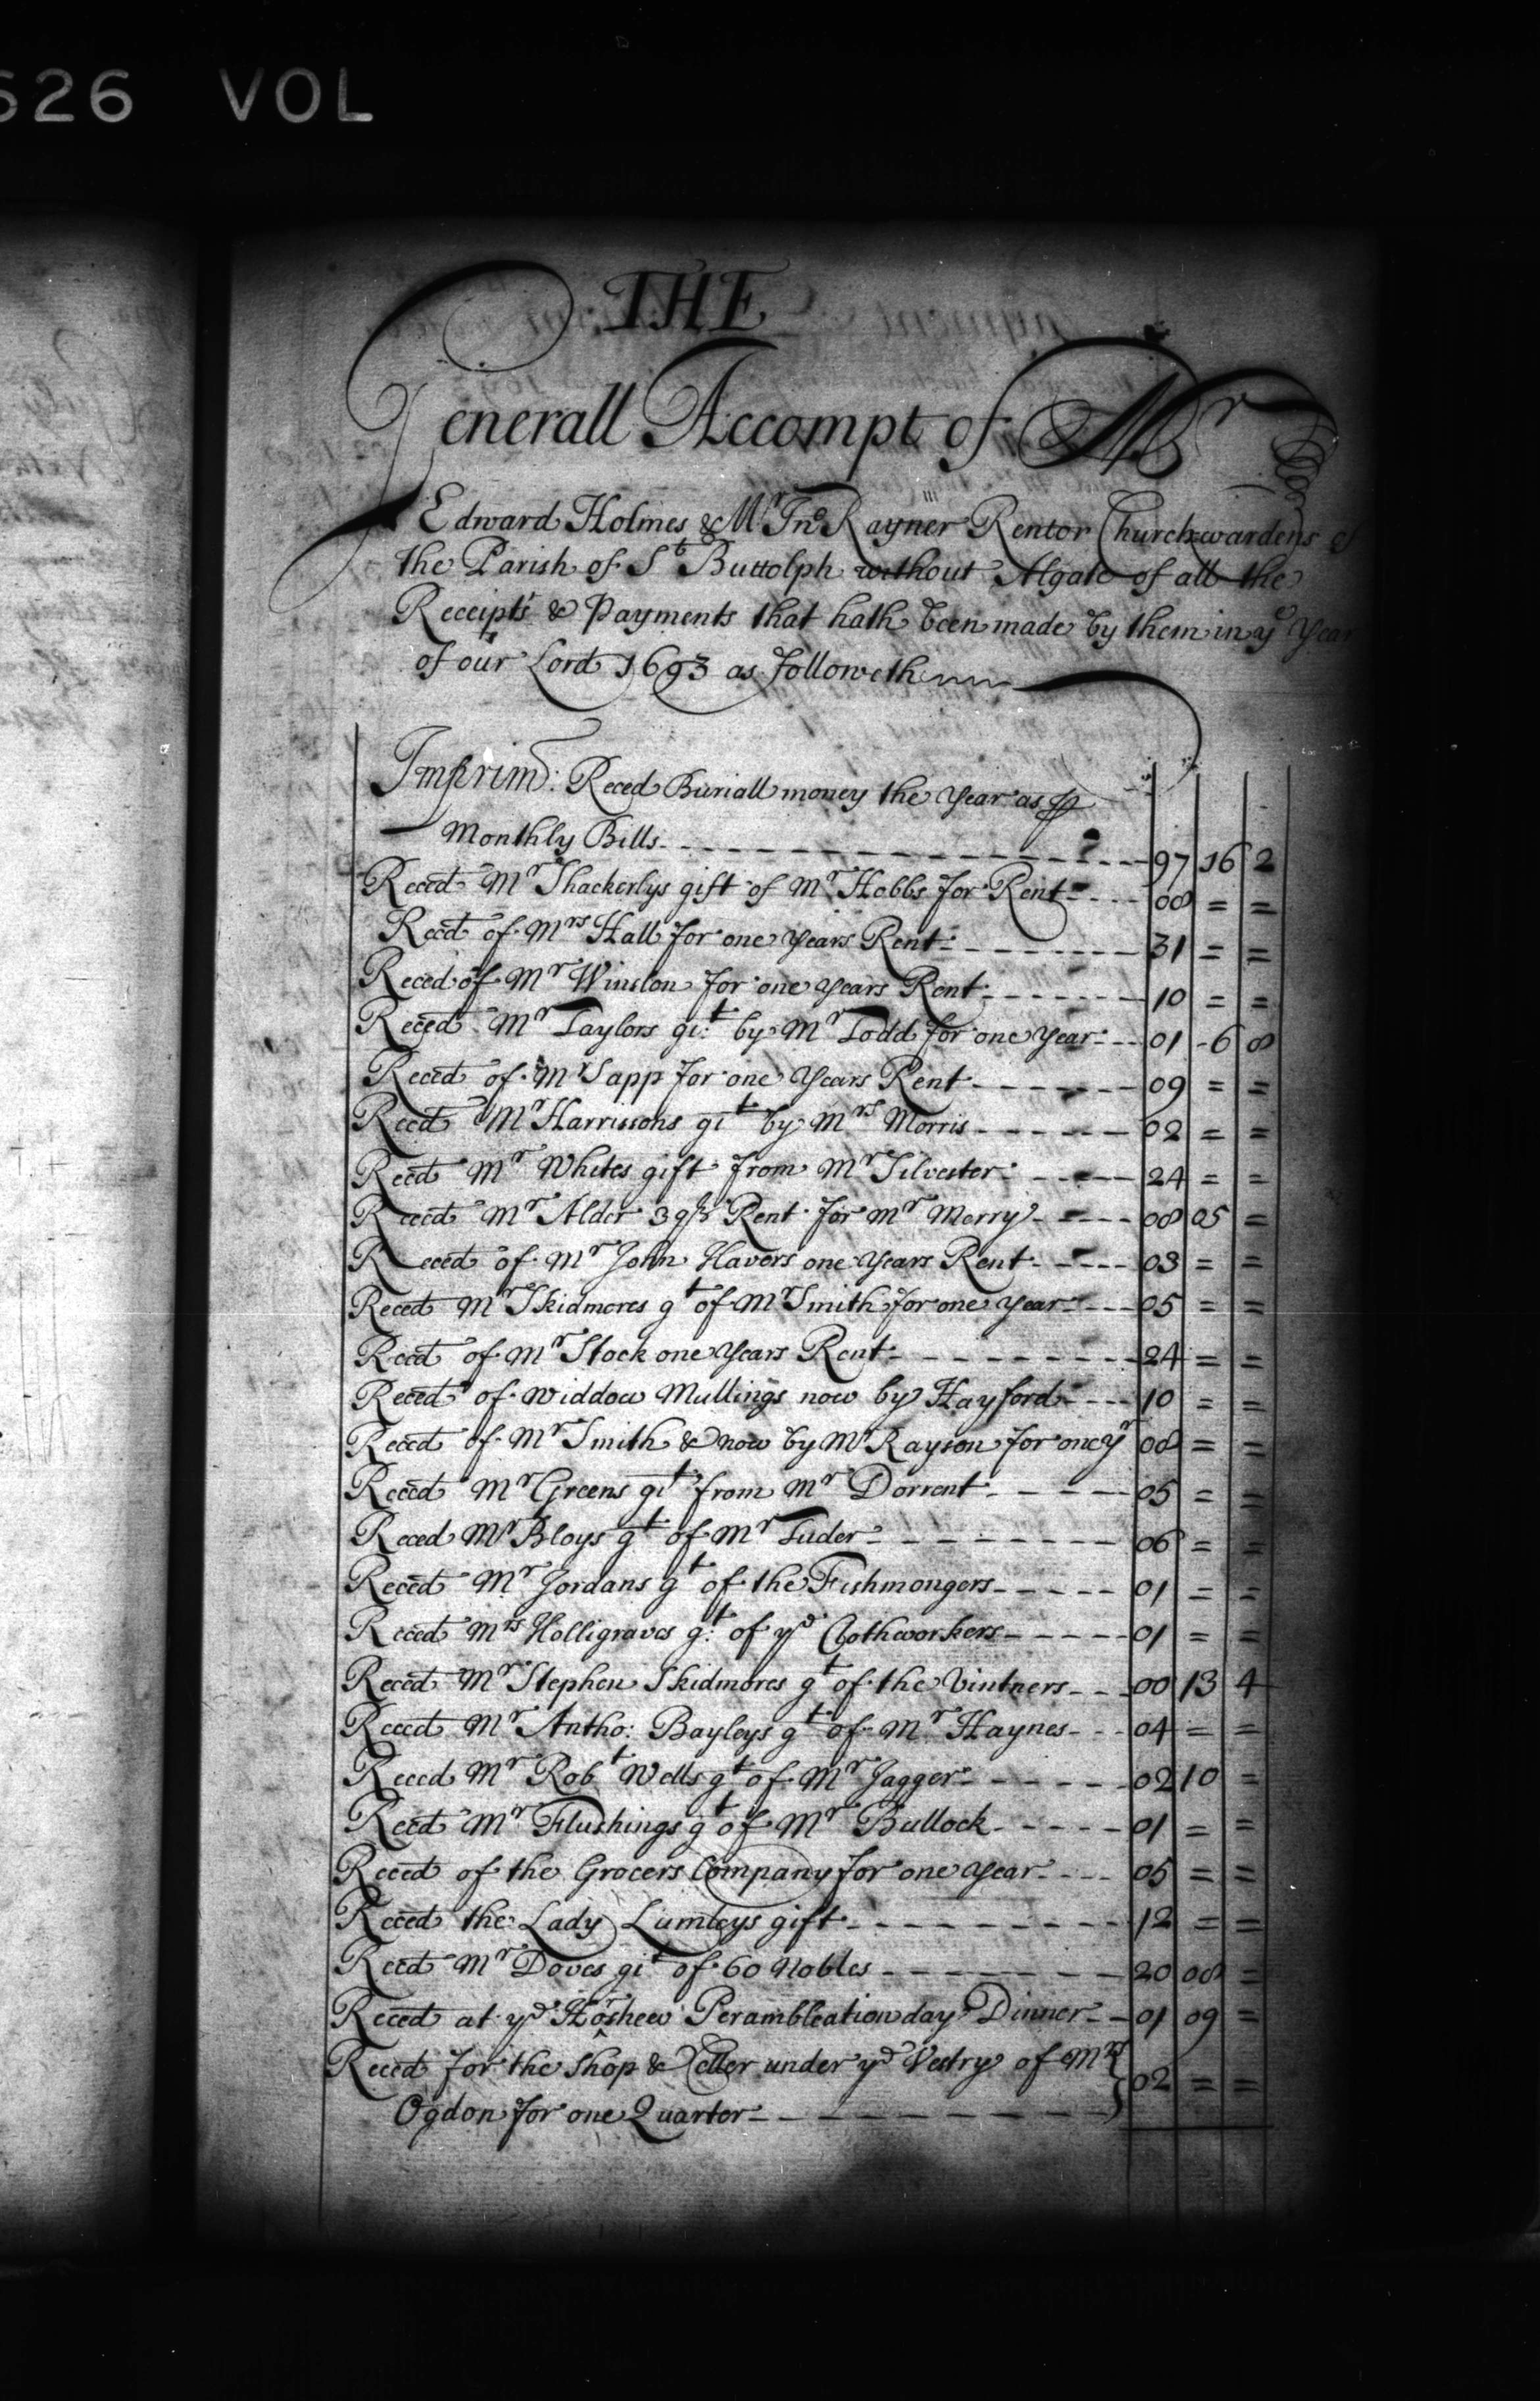 626 VOL
THE
Generall Accompt of Mr
Edward Holmes & Mr Jno Rayner Rentor Churchwardens of
the Parish of St Buttolph without Algate of all the
Receipts & Payments that hath been made by them in ye Year
of our Lord 1693 as followeth
Imprim: Reced Buriall money the Year as
Monthly Bills 97 16 2
Reced Mr Thackerlys gift of Mr Hobbs for Rent 08 = =
Recd of Mrs Hall for one Years Rent 31 = =
Reced of Mr Winslon for one Years Rent 10 = =
Reced Mr Taylors git by Mr Todd for one Year 01 - 6 8
Reced of Mr Sapp for one Years Rent 09 = =
Recd Mr Harrisons git by Mrs Morris 02 = =
Recd Mr Whites gift from Mr Silvester 24 = =
Reced Mr Alder 3 qrs Rent for Mr Merry 08 05 =
Reced of Mr John Havers one Years Rent 03 = =
Reced Mr Skidmores gt of Mr Smith for one Year 05 = =
Recd of Mr Stock one Years Rent 24 = =
Reced of Widdow Mullings now by Hayford 10 = =
Reced of Mr Smith & now by Mr Rayson for one yr 08 = =
Reced Mr Greens git from Mr Dorrent 05 = =
Reced Mr Bloys gt of Mr Tuder 06 = =
Reced Mr Jordans gt of the Fishmongers 01 = =
Reced Mrs Holligraves gt of ye Clothworkers 01 = =
Reced Mr Stephen Skidmores gt of the Vintners 00 13 4
Reced Mr Antho: Bayleys gt of Mr Haynes 04 = =
Reced Mr Robt Wells gt of Mr Jagger 02 10 =
Recd Mr Flushings gt of Mr Bullock 01 = =
Reced of the Grocers Company for one Year 05 = =
Reced the Lady Lumleys gift 12 = =
Recd Mr Doves git of 60 Nobles 20 08 =
Reced at ye Perambleation day Dinner 01 09 =
Reced for the Shop & Celler under ye Vestry of Mr
Ogdon for one Quarter 02 = =